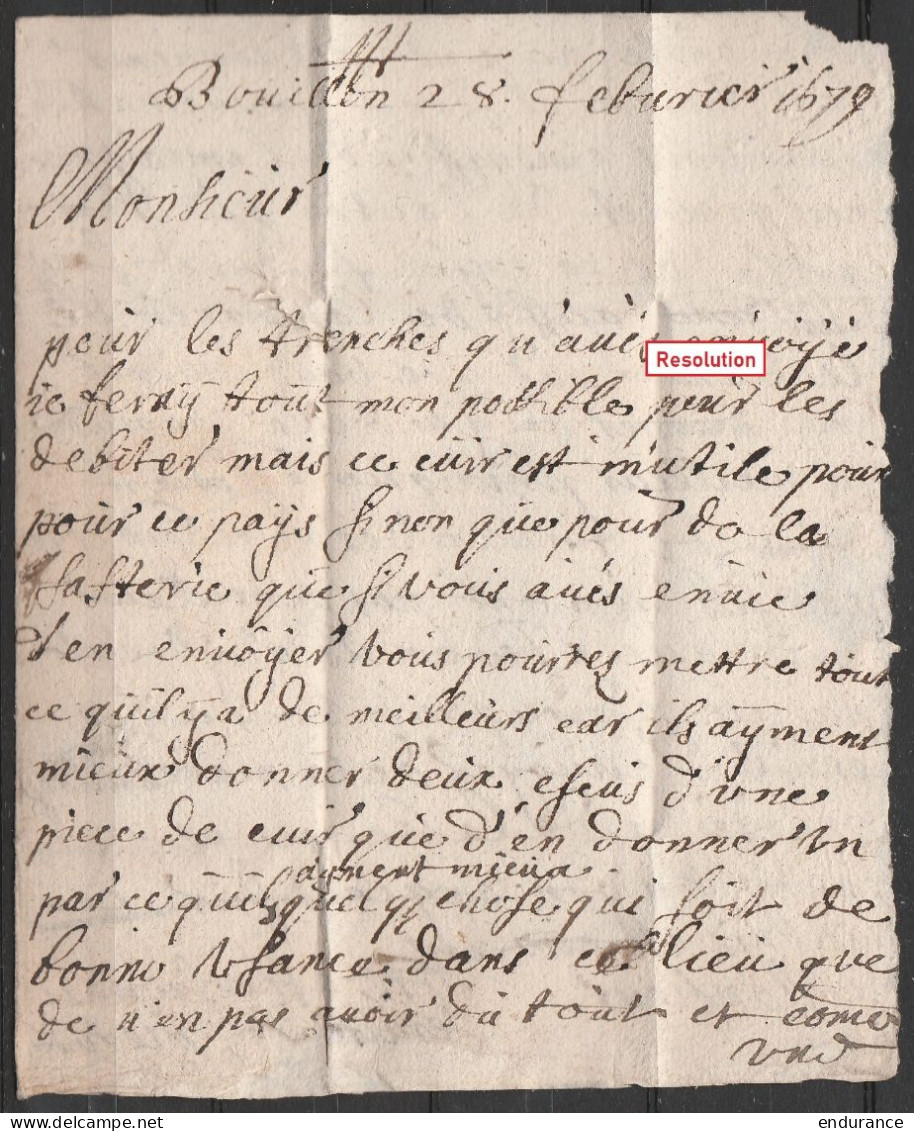 Bouillon 28. feburier 1679
Monsieur
pour les trenches qu'aués enuoÿé
Resolution
ie feraÿ tout mon possible pour les
debiter mais ce cuir est inutile pour
pour ce paÿs sinon que pour de la
que si vous aués enuie
d'en enuoÿer vous pourres mettre tout
ce quil ÿ a de meilleurs car ils aÿment
mieux donner deux escus d'une
piece de cuir que d'en donner un
aÿment mieux
par ce quils quelq chose qui soit de
bonne usance dans ce lieu que
de n'en pas auoir du tout et come
une
endurance